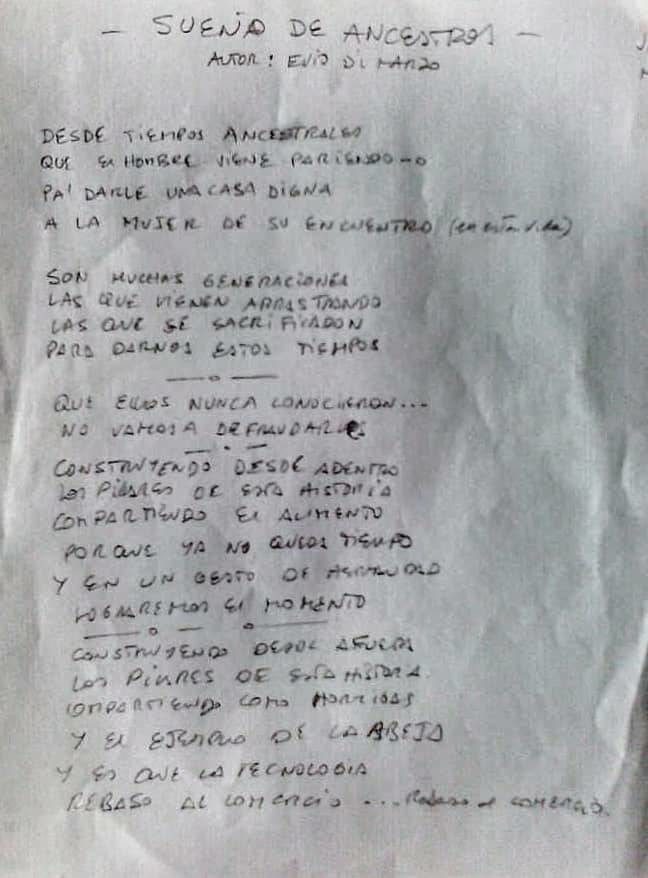 - SUEÑO DE ANCESTROS -
AUTOR: EVIO DI MARZO
DESDE TIEMPOS ANCESTRALES
QUE EL HOMBRE VIENE PARIENDO
PA' DARLE UNA CASA DIGNA
A LA MUJER DE SU ENCUENTRO (en esta vida)
SON MUCHAS GENERACIONES
LAS QUE VIENEN ARRASTRANDO
LAS QUE SE SACRIFICARON
PARA DARNOS ESTOS TIEMPOS
QUE ELLOS NUNCA CONOCIERON...
NO VAMOS A DEFRAUDARLES
CONSTRUYENDO DESDE ADENTRO
LOS PILARES DE ESTA HISTORIA
COMPARTIENDO EL ALIMENTO
PORQUE YA NO QUEDA TIEMPO
Y EN UN GESTO DE HERMANDAD
LOGRAREMOS EL MOMENTO
CONSTRUYENDO DESDE AFUERA
LOS PILARES DE ESTA HISTORIA
COMPARTIENDO COMO HORMIGAS
Y EL EJEMPLO DE LA ABEJA
Y ES QUE LA TECNOLOGIA
REBASO AL COMERCIO ... Rebaso al COMERCIO.